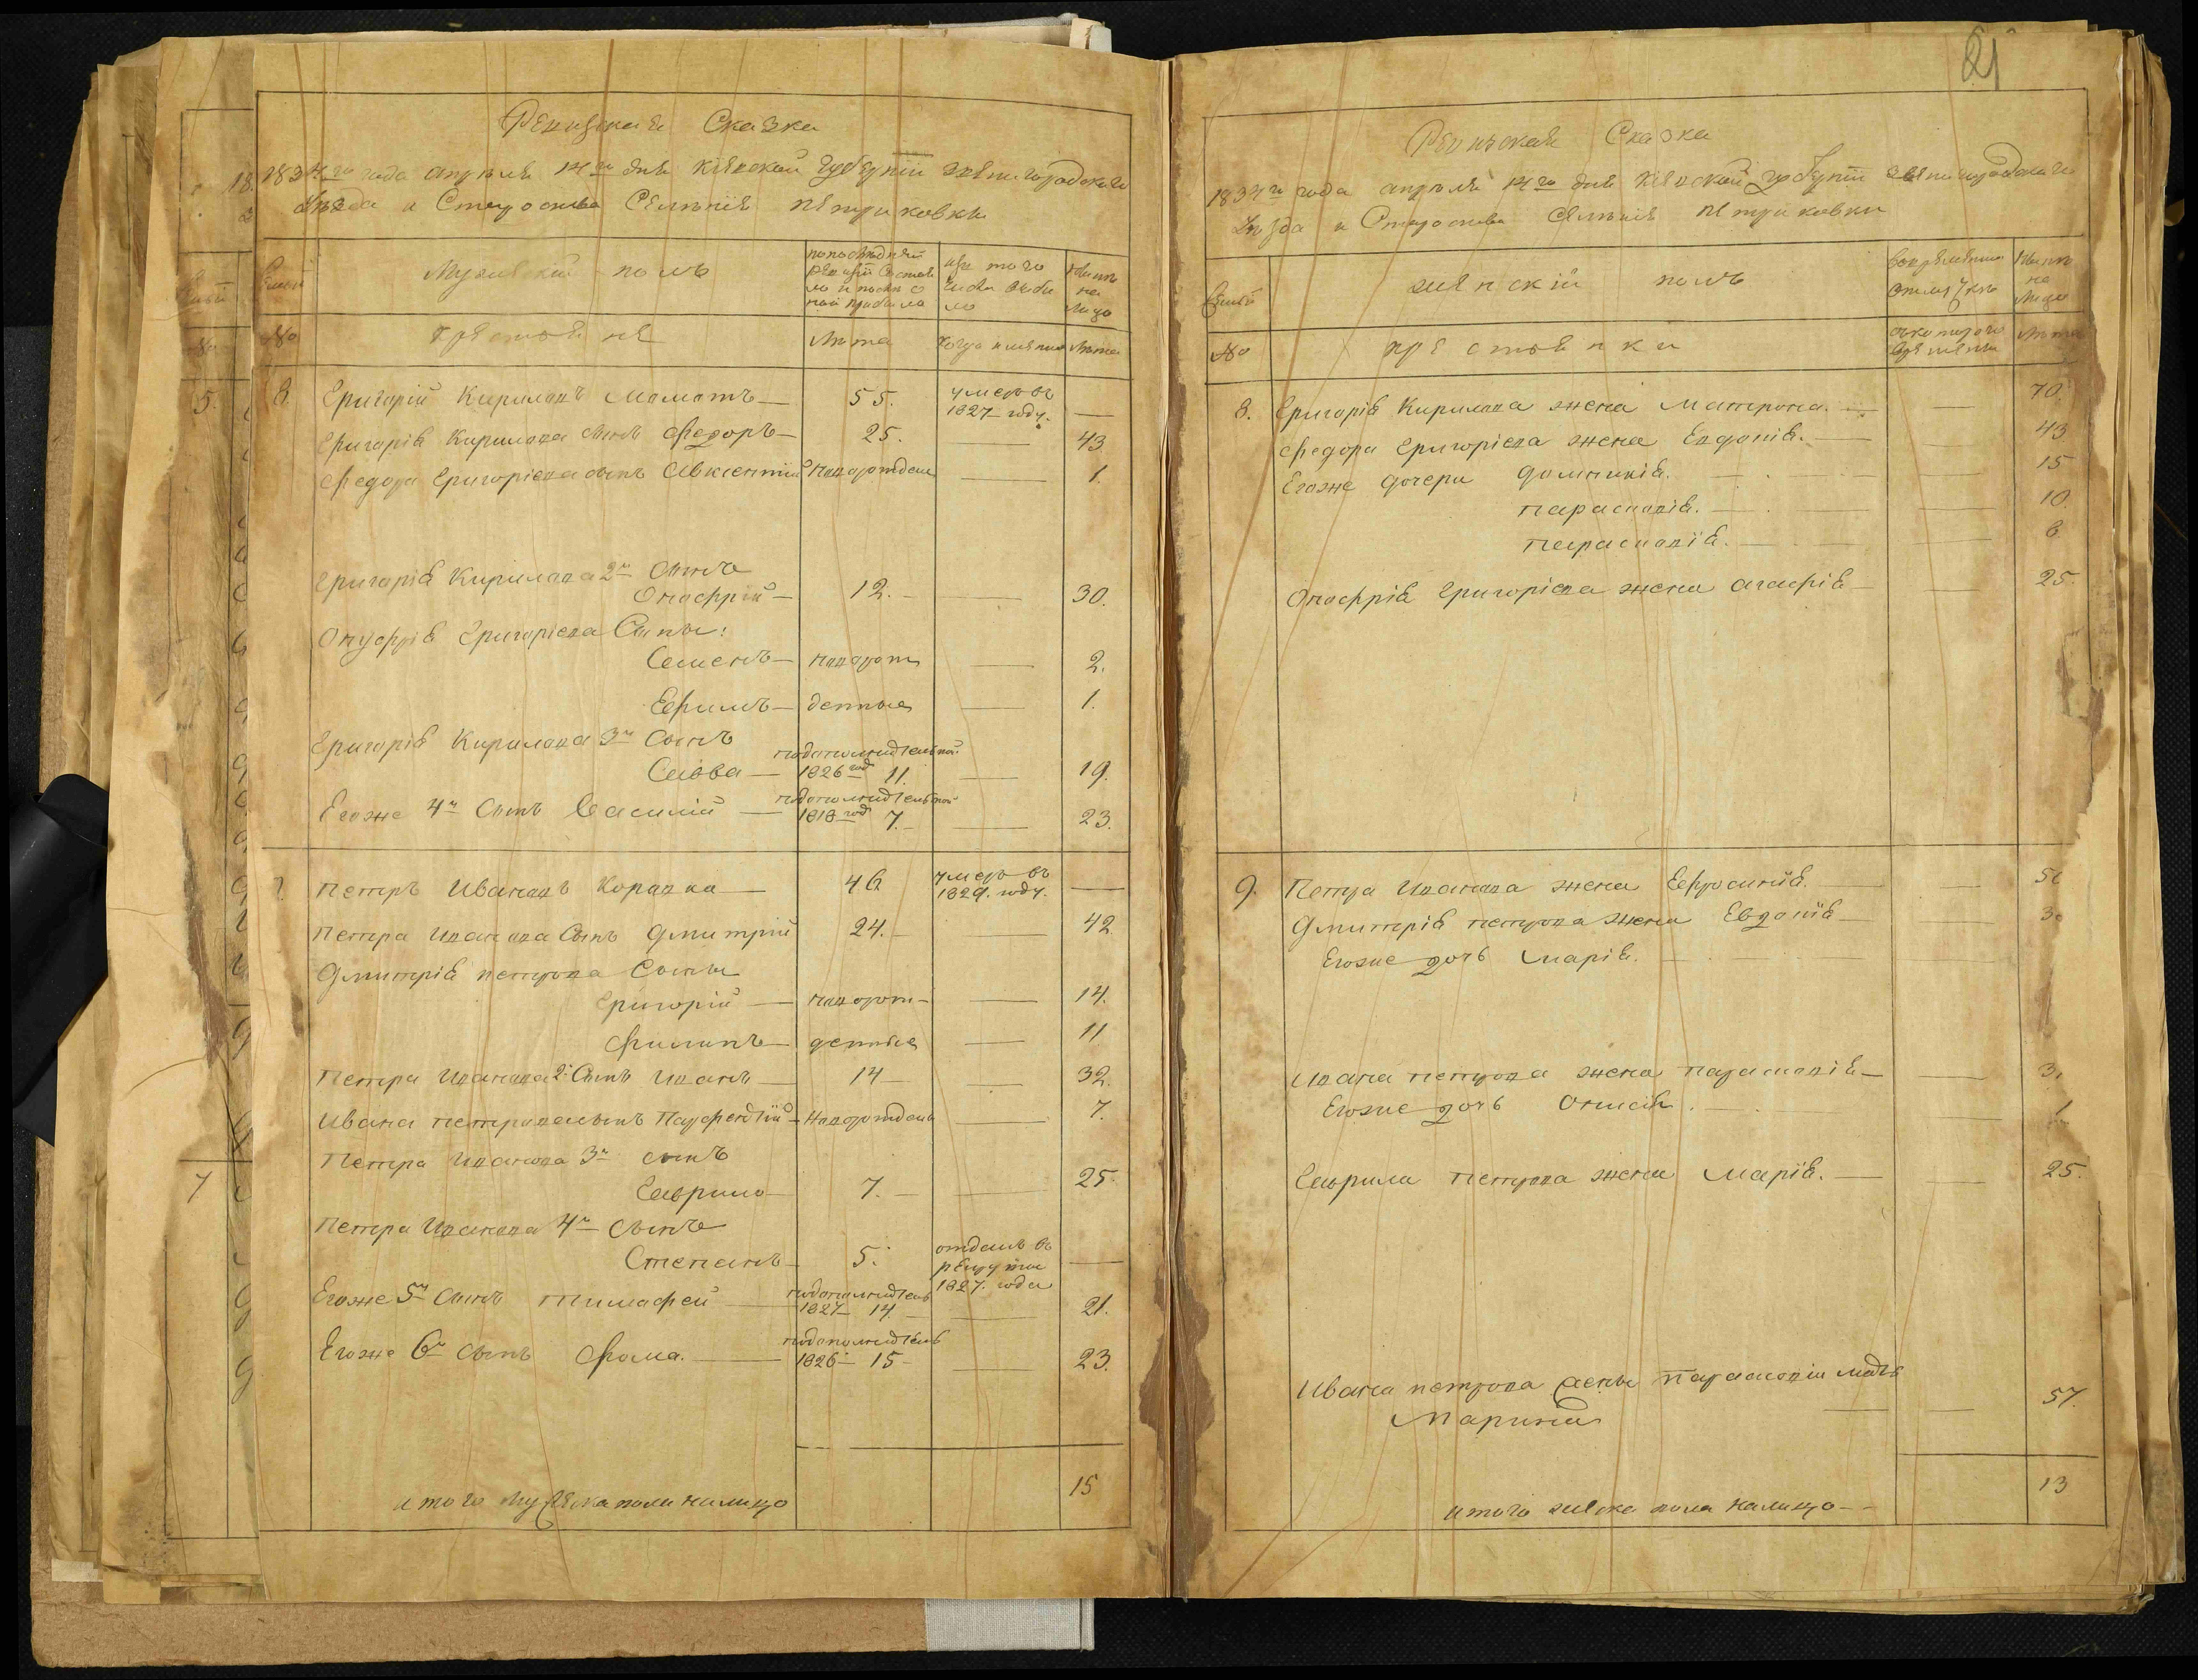 Ревизкая Сказка
1834го года апреля 14го дня Кіевской губерніи звенигородскаго
уѣзда и Староства Селенія петриковки
Семьи
Мужескій полъ
по последней ревизіи состояло и после оной прибыло
изъ того числа выбыло
Ныне на лицо
№
крестьяне
Лѣта
когда имянно
Лѣта
8. Григорій Кириловъ Маматъ — 55. умеръ въ 1827 году. —
Григорія Кирилова сынъ Федоръ — 25. — 43
Федора Григоріева сынъ Авксентий новорожденъ — 1.
Григорія Кирилова 2й сынъ
Онофрій — 12. — 30.
Онуфрія Григоріева Сыны:
Семенъ — новорож — 2.
Ефимъ — денные — 1.
Григорія Кирилова 3й сынъ
Савва — подополнительной 1826 год 11. — 19.
Егоже 4й Сынъ Василій — подополнительной 1818 год 7. — 23.
петръ Ивановъ Коравка — 46 умеръ въ 1829. году. —
петра Иванова Сынъ Дмитрій 24. — 42
Дмитрія петрова Сыны
Григорій — новорож — 14.
Филипъ — денные — 11
петра Иванова 2й Сынъ Иванъ — 14 — 32.
Ивана петрова сынъ Парфентій — новорожденъ — 7.
Петра Иванова 3й сынъ
Гаврило — 7. — 25
Петра Иванова 4й сынъ
Степанъ — 5. отданъ въ рекруты 1827. года —
Егоже 5й Сынъ тимофей — подополнитель 1827 — 14. — 21.
Егоже 6й Сынъ Фома. — подополнитель 1826 — 15 — 23.
итого мужеска пола налицо 15
5.
7
21
Ревиская Сказка
1834го года апреля 14го дня Кіевской губерніи звенигородскаго
Уѣзда и Староства селенія петриковки
Семьи
женскій полъ
Во временной отлучкѣ
Ныне на лицо
№
крестьянки
съкотораго времяни
Лѣта
8. Григорія Кирилова жена Матрона. — 70.
Федора Григоріева жена Евдокія. — 43
Егоже дочери домникія. — 15
парасковія. — 10.
парасковія. — 6
Онофрія Григоріева жена агафія — 25.
9. Петра Иванова жена Ефросинія. —
Дмитрія петрова жена Евдокія —
Егоже дочь Марія. —
Ивана петрова жена парасковія —
Егоже дочь Онисія. — 1
Гаврила петрова жена Марія. — 25.
Ивана петрова жены параскович мать
Марина — 57.
итого женска пола налицо — 13